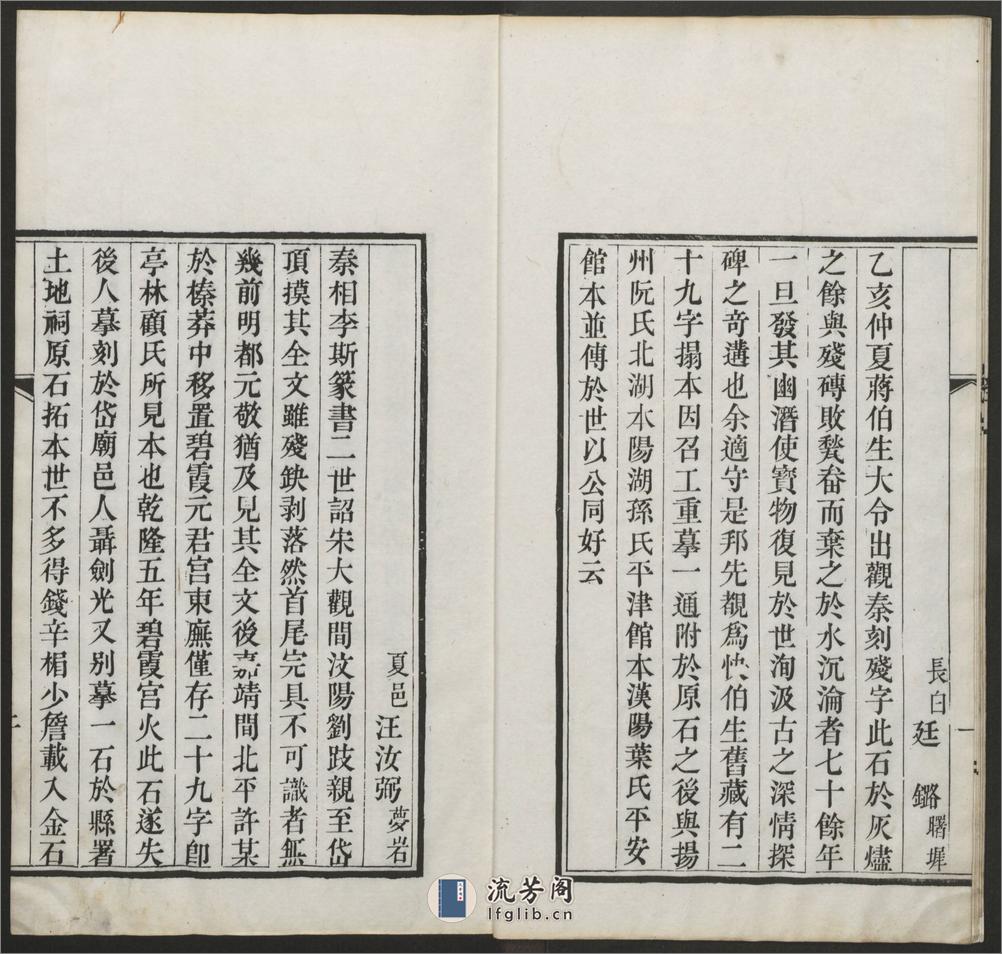 長白 廷 鏴 曙墀
乙亥仲夏蔣伯生大令出觀秦刻殘字此石於灰燼
之餘與殘磚敗甃畚而棄之於水沉淪者七十餘年
一旦發其幽潛使寶物復見於世洵汲古之深情探
碑之奇遘也余適守是邦先覩爲快伯生舊藏有二
十九字搨本因召工重摹一通附於原石之後與揚
州阮氏北湖本陽湖孫氏平津館本漢陽葉氏平安
館本並傳於世以公同好云
一
夏邑 汪汝弼 夢岩
秦相李斯篆書二世詔宋大觀間汶陽劉跂親至岱
頂摸其全文雖殘鈌剥落然首尾完具不可識者無
幾前明都元敬猶及見其全文後嘉靖間北平許某
於榛莽中移置碧霞元君宫東廡僅存二十九字卽
亭林顧氏所見本也乾隆五年碧霞宫火此石遂失
後人摹刻於岱廟邑人聶劍光又别摹一石於縣署
土地祠原石拓本世不多得錢辛楣少詹載入金石
流芳阁
lfglib.cn